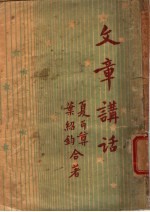 文章講話
夏丏尊
葉紹鈞
合著